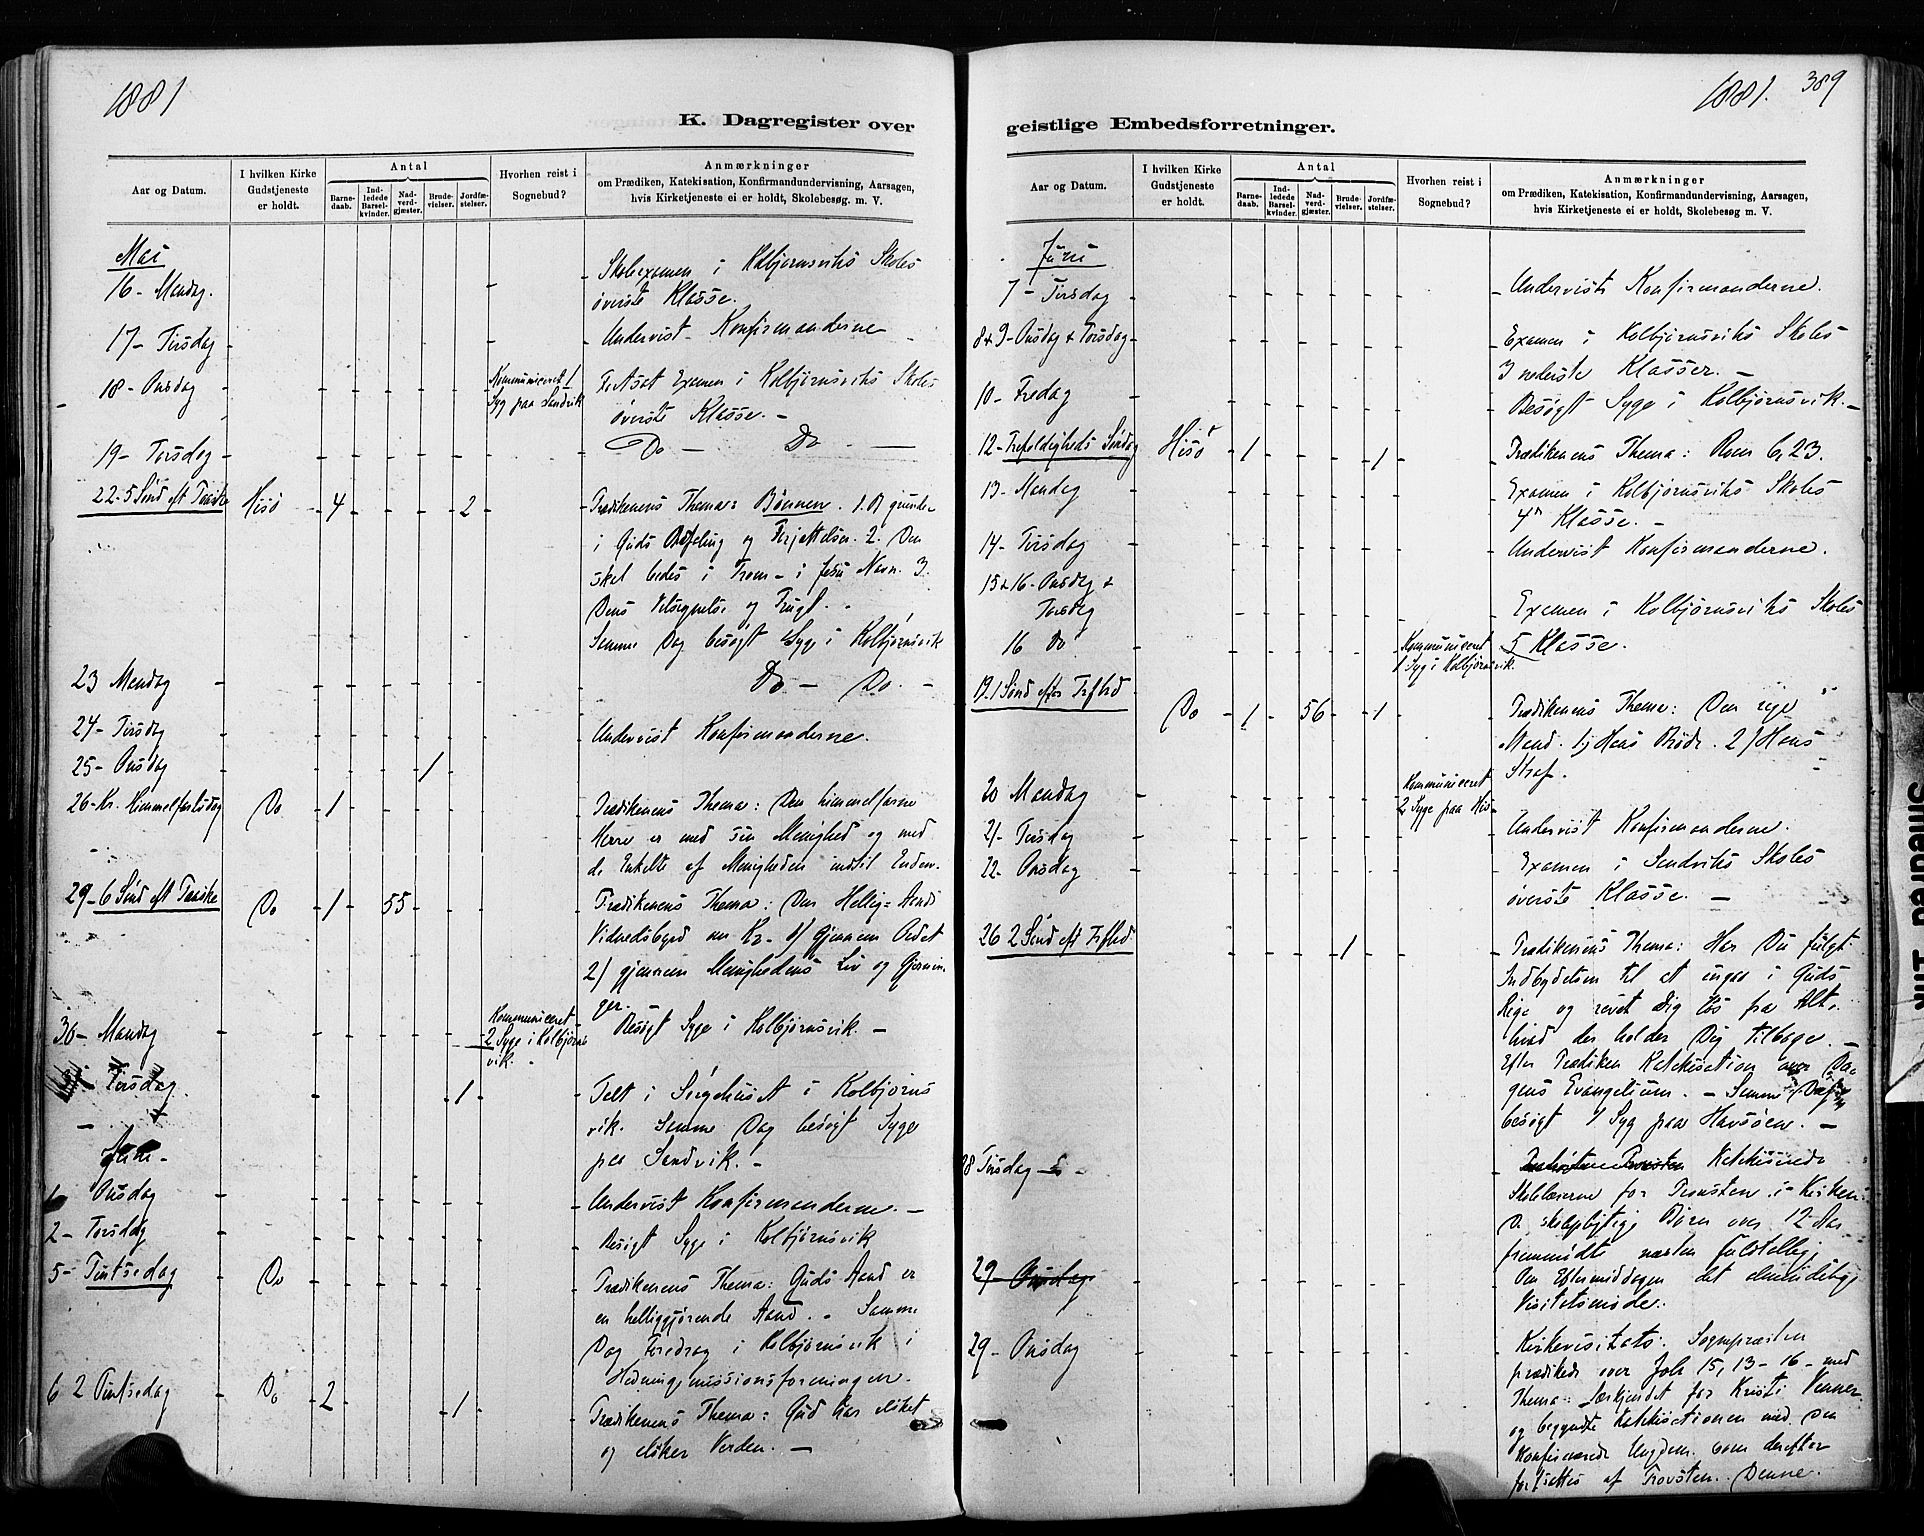 1881
K. Dagregister over
Aar og Datum.
I hvilken Kirke Gudstjeneste er holdt.
Antal
Barnedaab.
Indledede Barselkvinder.
Nadverdgjæster.
Brudevielser.
Jordfæstelser.
Hvorhen reist i Sognebud?
Anmærkninger
om Prædiken, Katekisation, Konfirmandundervisning, Aarsagen,
hvis Kirketjeneste ei er holdt, Skolebesøg m. V.
Mai
16 - Mandag. Skoleexamen i Kolbjørnsviks Skoles
øverste Klasse.
17 - Tirsdag Undervist Konfirmanderne
18 - Onsdag Kommuniceret 1 Syg paa Sandvik Fortsat Examen i Kolbjørnsviks Skoles
øverste Klasse. -
19 - Torsdag Do - Do -
22 - 5 Sønd eft Paaske Hisø 4 2 Prædikenens Thema: Bønnen. 1. Dens Grund
i Guds Befaling og Forjættelser. 2. Den
skal bedes i Troen - i Jesu Navn. 3.
Dens Velsignelse og Frugt.
Samme Dag besøgt Syge i Kolbjørnsvik
23 Mandag Do - Do. -
24 - Tirsdag Undervist Konfirmanderne.
25 - Onsdag 1
26 - Kr. Himmelfartsdag Do 1 Prædikenens Thema: Den himmelfarne
Herre er med sin Menighed og med
de Enkelte af Menigheden indtil Enden.
29 - 6 Sønd eft Paaske Do 1 55 Prædikenens Thema: Den Hellig-Aands
Vidnedsbyrd om Kr. 1) Gjennem Ordet
2) gjennem Menighedens Liv og Gjernin-
ger.
30 - Mandag Kommuniceret 2 Syge i Kolbjørnsvik. Besøgt Syge i Kolbjørnsvik. -
Tirsdag 1 Talt i Sørgehuset i Kolbjørns
vik. Samme Dag besøgt Syge
paa Sandvik. -
Juni -
1 Onsdag Undervist Konfirmanderne. -
2 - Torsdag Besøgt Syge i Kolbjørnsvik
5 - Pintsedag Do Prædikenens Thema: Guds Aand er
en helliggjørende Aand. - Samme
Dag Foredrag i Kolbjørnsvik i
Hedningemissionsforeningen.
6 2 Pintsedag Do 2 1 Prædikenens Thema: Gud har elsket
og elsker Verden. -
1881. 389
geistlige Embedsforretninger.
Aar og Datum.
I hvilken Kirke Gudstjeneste er holdt.
Antal
Barnedaab.
Indledede Barselkvinder.
Nadverdgjæster.
Brudevielser.
Jordfæstelser.
Hvorhen reist i Sognebud?
Anmærkninger
om Prædiken, Katekisation, Konfirmandundervisning, Aarsagen,
hvis Kirketjeneste ei er holdt, Skolebesøg m. V.
Juni
7 - Tirsdag Undervist Konfirmanderne.
8 & 9 - Onsdag & Torsdag Examen i Kolbjørnsviks Skoles
3 nederste Klasser. -
10 - Fredag Besøgt Syge i Kolbjørnsvik. -
12 - Trefoldigheds Søndag Hisø 1 1 Prædikenens Thema: Rom 6, 23.
13 - Mandag Examen i Kolbjørnsviks Skoles
4de Klasse. -
14 - Tirsdag Undervist Konfirmanderne.
15 & 16 - Onsdag &
Torsdag Examen i Kolbjørnsviks Skoles
16 Do Kommuniceret 1 Syg i Kolbjørnsvik 5 Klasse.
19. 1 Sønd efter Trfhd Do 1 56 1 Prædikenens Thema: Den rige
Mand. 1) Hans Brøde. 2) Hans
Straf.
20 Mandag Kommuniceret 2 Syge paa His-
21 - Tirsdag Undervist Konfirmanderne.
22 - Onsdag Examen i Sandviks Skoles
øverste Klasse. -
26 2 Sønd eft Trfhd 1 Prædikenens Thema: Har Du fulgt
Indbydelsen til at ingaa i Guds
Rige og revet Dig løs fra Alt,
hvad der holder Dig tilbage. -
Efter Prædiken Katekisation over Da-
gens Evangelium. - Samme Dag
besøgt 1 Syg paa Havsøen. -
28 Tirsdag - Katekiserede
Skolelærerne for Provsten i Kirken.
De skolepligtige Børn over 12 Aar
fremmødte næsten fulstellig,
Om Eftermiddagen det almindelige
Visitetsmøde.
29 - Onsdag
29 - Onsdag Kirkevisitats. Sognepræsten
prædikede over Joh 15, 13 - 16 - med
Thema: for Kristi Venner
og begyndte Katekisationen med den
konfirmerede Ungdom som derefter
fortsattes af Provsten. Denne